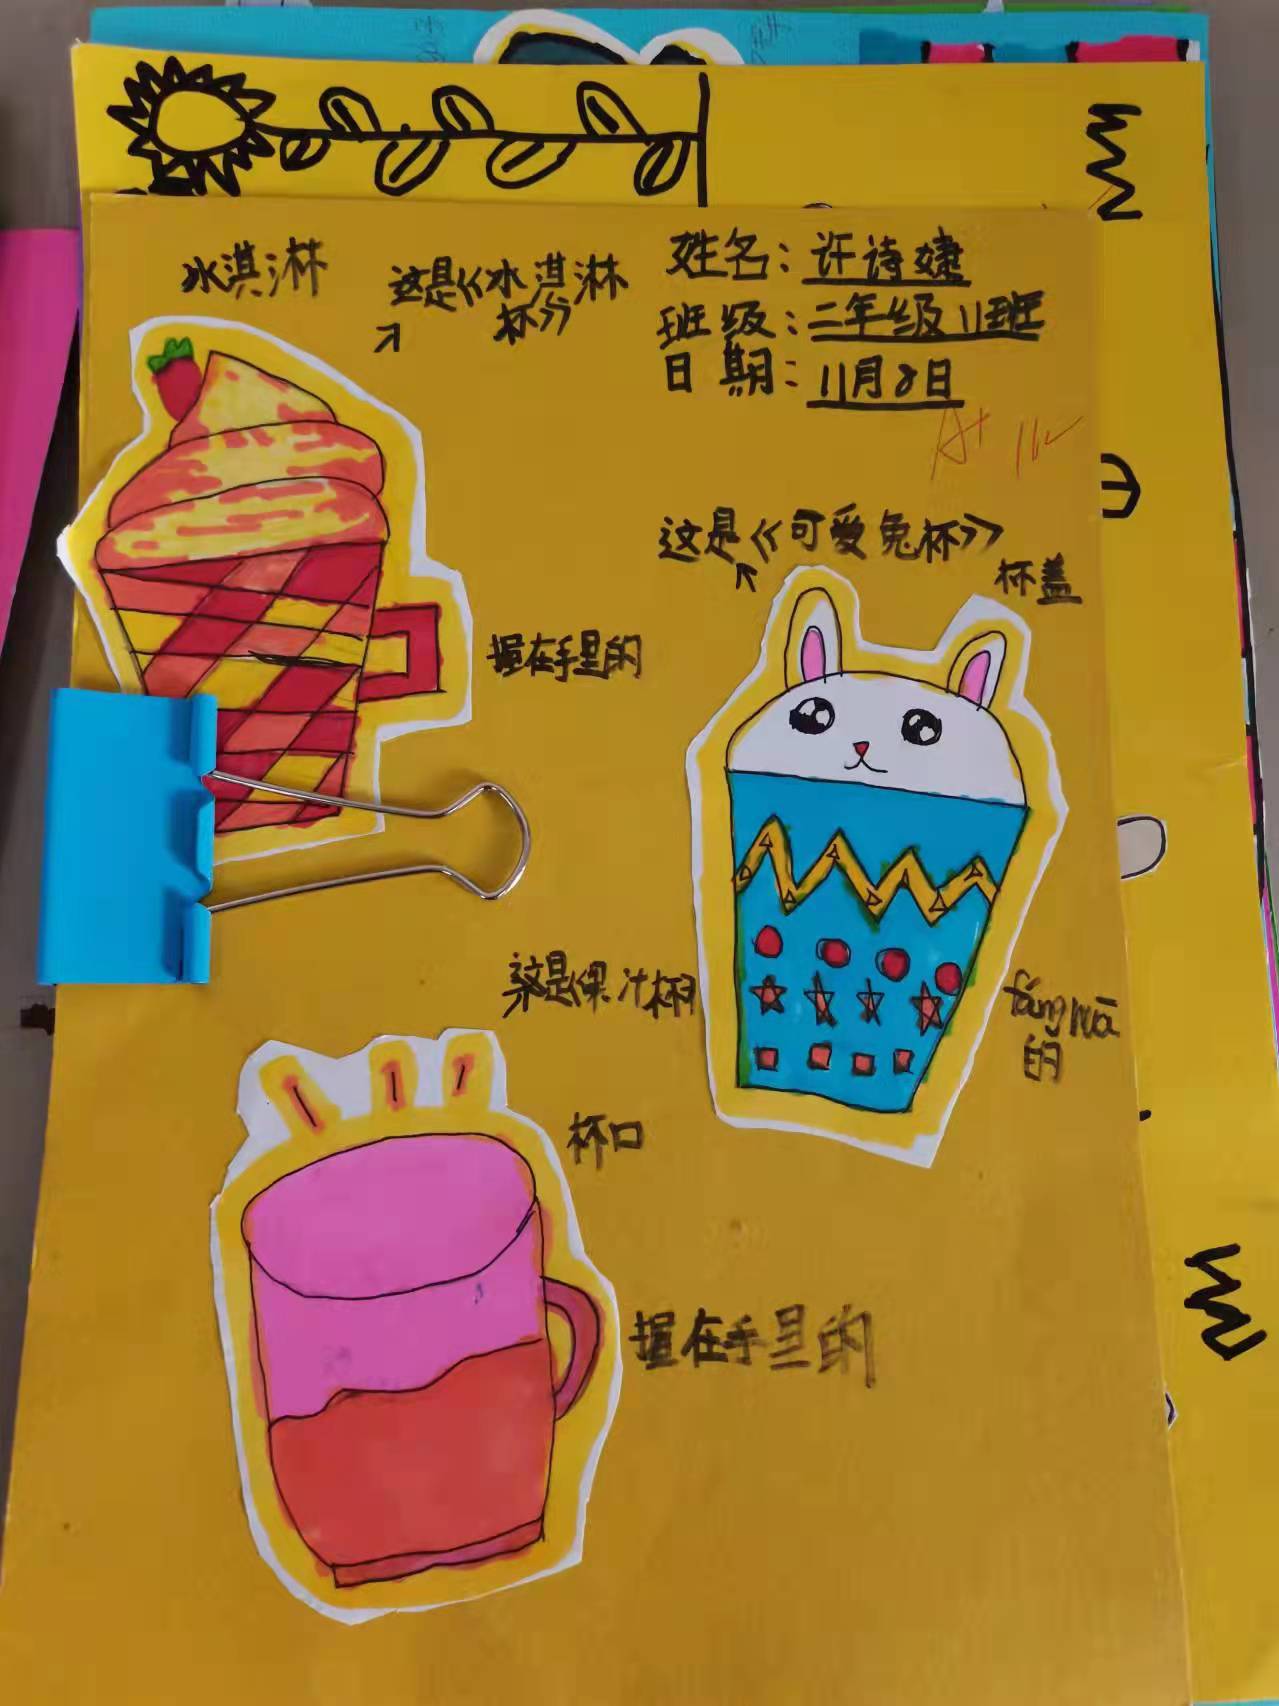 冰淇淋
这是《冰淇淋
杯》
姓名：许诗婕
班级：二年级11班
日期：11月8日
A+
这是《可爱兔杯》
杯盖
握在手里的
这是《果汁杯》
fáng huá
的
杯口
握在手里的